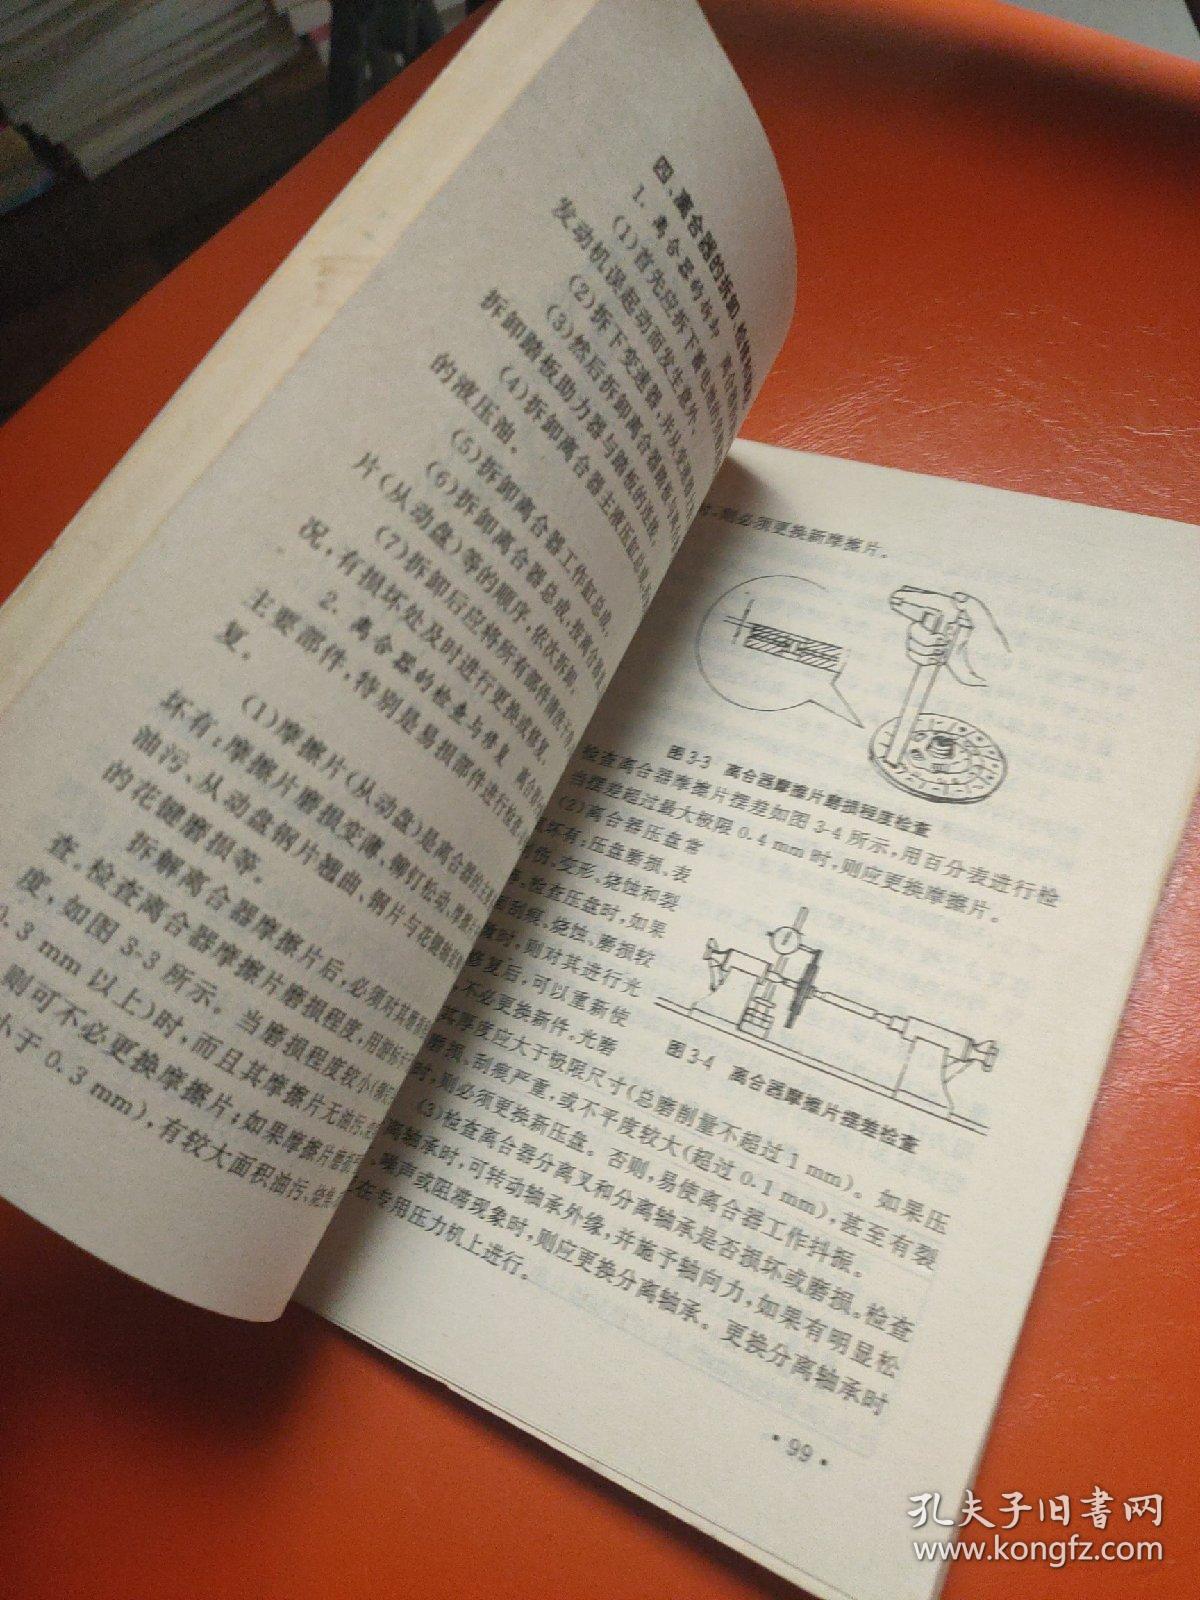 四、离合器的拆卸、检
1. 离合器的拆卸 离合器
(1)首先应拆下蓄电池的
发动机误起动而发生意外。
(2)拆下变速器,并从变速器
(3)然后拆卸离合器踏板与
拆卸踏板助力器与踏板的连接。
(4)拆卸离合器主液压缸总成
的液压油。
(5)拆卸离合器工作缸总成。
(6)拆卸离合器总成,按离合器
片(从动盘)等的顺序,依次拆卸。
(7)拆卸后应将所有部件清洗干
况,有损坏处及时进行更换或修复。
2. 离合器的检查与修复 离合器
主要部件,特别是易损部件进行检查
复。
(1)摩擦片(从动盘)是离合器的主要
坏有:摩擦片磨损变薄、铆钉松动、摩擦片
油污、从动盘钢片翘曲、钢片与花键轴
的花键磨损等。
拆解离合器摩擦片后,必须对其磨损
查。检查离合器摩擦片磨损程度,用游标卡
度,如图 3-3 所示。当磨损程度较小(铆
0.3 mm 以上)时,而且其摩擦片无油污、
则可不必更换摩擦片;如果摩擦片磨损
小于 0.3 mm),有较大面积油污、烧焦
则必须更换新摩擦片。
图 3-3 离合器摩擦片磨损程度检查
检查离合器摩擦片摆差如图 3-4 所示,用百分表进行检
当摆差超过最大极限 0.4 mm 时,则应更换摩擦片。
(2)离合器压盘常
坏有:压盘磨损、表
伤、变形、烧蚀和裂
检查压盘时,如果
刮痕、烧蚀、磨损较
时,则对其进行光
修复后,可以重新使
不必更换新件。光磨
厚度应大于极限尺寸(总磨削量不超过 1 mm)。如果压
磨损、刮痕严重,或不平度较大(超过 0.1 mm),甚至有裂
时,则必须更换新压盘。否则,易使离合器工作抖振。
图 3-4 离合器摩擦片摆差检查
(3)检查离合器分离叉和分离轴承是否损坏或磨损。检查
离轴承时,可转动轴承外缘,并施予轴向力,如果有明显松
噪声或阻滞现象时,则应更换分离轴承。更换分离轴承时
在专用压力机上进行。
• 99 •
孔夫子旧书网
www.kongfz.com